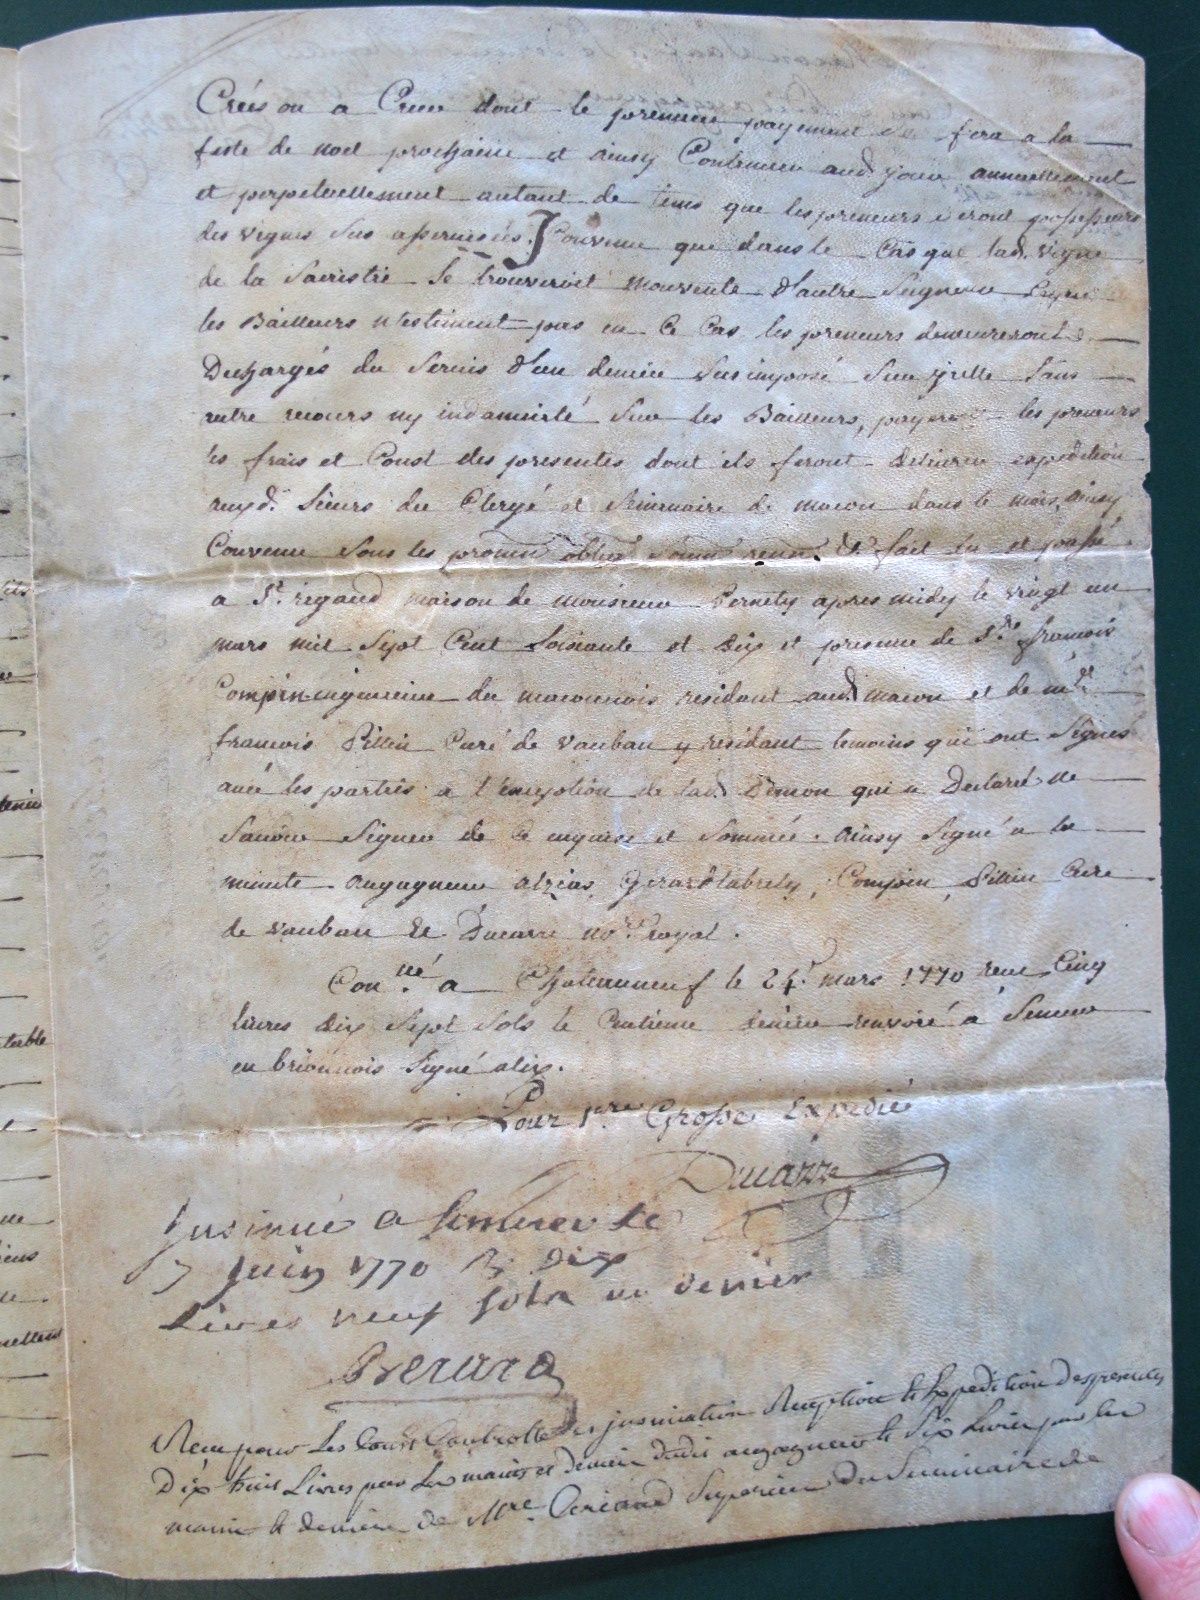 Créés ou a Creer dont le premier payement se fera a la
feste de noel prochaine et ainsy Continuer aud. jour annuellement
et perpetuellement autant de tems que les preneurs seront possesseurs
des vignes sus asservisées. Convenu que dans le Cas que lad. vigne
de la Sacristie se trouveroit mouvente d'autre Seigneur
les Bailleurs n'estiment pas en Ce Cas les preneurs demeureront
Dechargés du Servis d'un denier sus imposé Sur jcelle Sans
autre recours ny indamnité Sur les Bailleurs, payeront les preneurs
les frais et Coust des presentes dont ils feront delivrer expedition
auxd. Sieurs du Clergé et Seminaire de macon dans le mois, Ainsy
Convenu Sous les prom. oblig. Soum. renon. &. fait lu et passé
a St. rigaud maison de monsieur Pernety apres midy le vingt un
mars mil Sept Cent Soixante et dix et presence de Sr. francois
Compin ingenieur du maconnois residant aud. macon et de me.
francois Pillin Curé de vauban y residant temoins qui ont Signés
avec les parties a l'exception de lad. Dimon qui a Declaré ne
Savoir Signer de Ce enquise et Sommée. Ainsy Signé a la
minute augagneur alzias, Girard labrely, Compin, Pillin Curé
de vauban et Ducarre nore. royal.
Con.né a Chateauneuf le 24. mars 1770 reçu Cinq
livres Dix Sept Sols le Centieme denier renvoié a Semur
en brionnois Signé alix.
Pour 1ere Grosse Expedié
Ducarre
Jnsinué a Semur le
7 juin 1770 R. Dix
Livres neuf sols un denier
Berard
Reçu pour Les Cours Controlle jnsinuation Reception et Expedition des presentes
Dix huit Livres par Les mains et denier dudit augagneur et Six Livres par les
mains et deniers de Mre. Superieur du Seminaire de